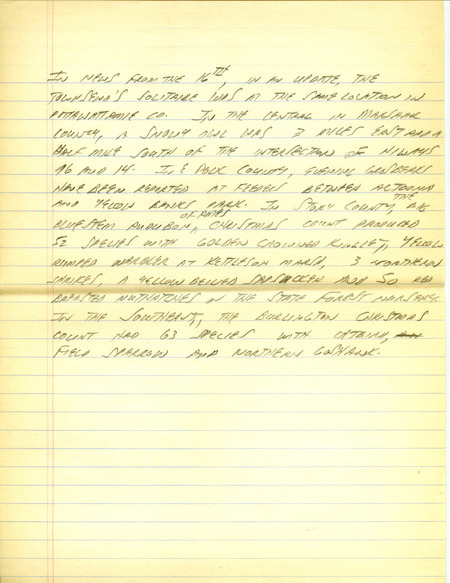 IN NEWS FROM THE 16TH, IN AN UPDATE, THE
TOWNSEND'S SOLITAIRE WAS AT THE SAME LOCATION IN
POTTAWATTAMIE CO. IN THE CENTRAL IN MARSHALL
COUNTY, A SNOWY OWL WAS 3 MILES EAST AND A
HALF MILE SOUTH OF THE INTERSECTION OF HIWAYS
96 AND 14. IN E POLK COUNTY, EVENING GROSBEAKS
HAVE BEEN REPORTED AT FEEDERS BETWEEN ALTOONA
AND YELLOW BANKS PARK. IN STORY COUNTY, THE BIG
BLUESTEM AUDUBON, OF AMES CHRISTMAS COUNT PRODUCED
52 SPECIES WITH GOLDEN CROWNED KINGLET, YELLOW
RUMPED WARBLER AT KETTLESON MARSH, 3 NORTHERN
SHRIKES, A YELLOW BELLIED SAPSUCKER AND 50 RED
BREASTED NUTHATCHES IN THE STATE FOREST NURSERY.
IN THE SOUTHEAST, THE BURLINGTON CHRISTMAS
COUNT HAD 63 SPECIES WITH CATBIRD,
FIELD SPARROW AND NORTHERN GOSHAWK.